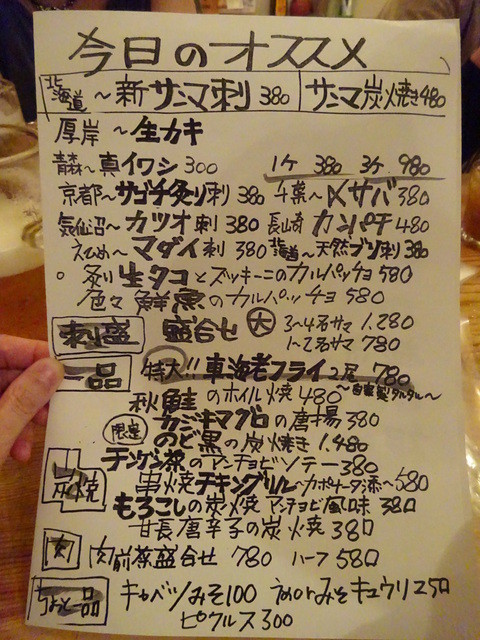 今日のオススメ
北海道〜新サンマ刺 380 サンマ炭火焼き 480
厚岸〜生カキ
1ケ 380 3ケ 980
青森〜真イワシ 300
京都〜サゴチ炙り刺 380 千葉〜〆サバ 380
気仙沼〜カツオ刺 380 長崎〜カンパチ 480
えひめ〜マダイ刺 380 北海道〜天然ブリ刺 380
○炙り生タコとズッキーニのカルパッチョ 580
色々鮮魚のカルパッチョ 580
刺盛 盛合せ 大 3〜4名サマ 1.280
1〜2名サマ 780
一品 特大!! 車海老フライ 2尾 780
〜自家製タルタル〜
秋鮭のホイル焼 480
カジキマグロの唐揚 380
限定 のど黒の炭火焼き 1.480
チンゲン菜のアンチョビソテー 380
炭焼 串焼チキングリル〜カポナータ添〜 580
もろこしの炭火焼 アンチョビ風味 380
甘長唐辛子の炭火焼 380
肉 肉前菜盛合せ 780 ハーフ 580
ちょっと一品 キャベツみそ 100 うめorみそキュウリ 250
ピクルス 300